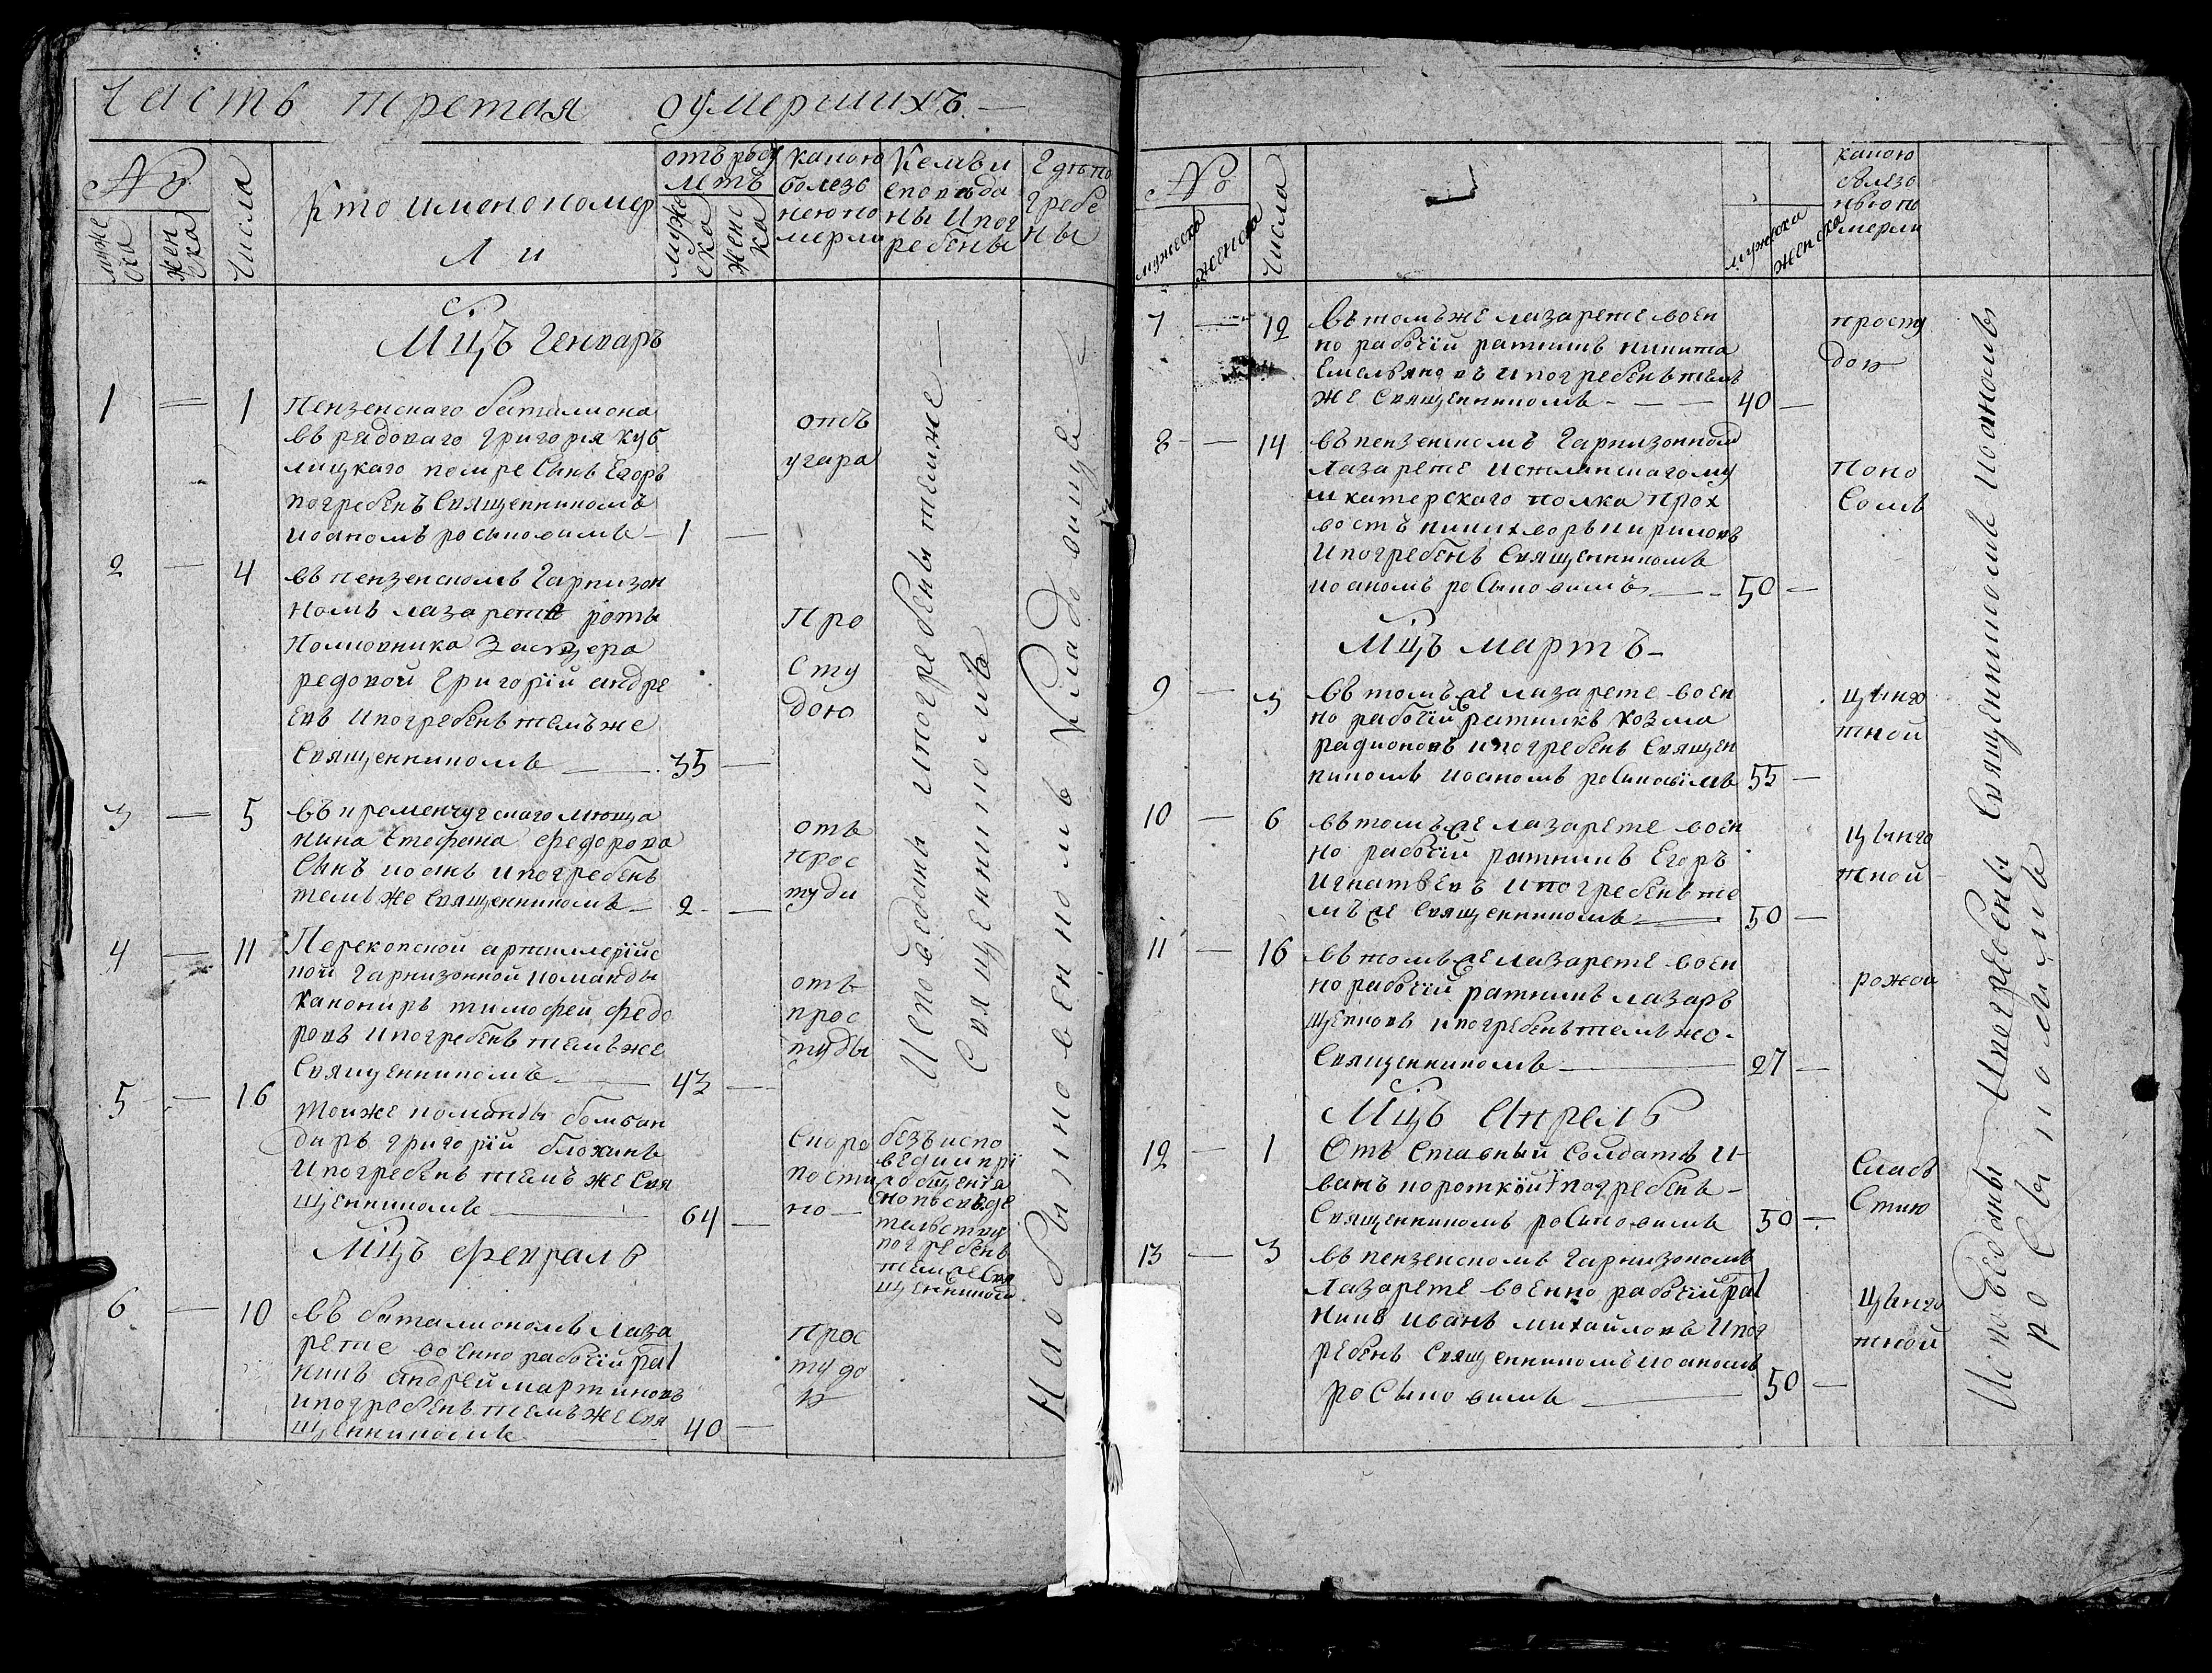 Часть третая оумершихъ
№
мужеска
женска
числа
Кто имено помер
ли
отъ роду
летъ
мужеска
женска
какою
болезо
нею по
мерли
Кемъ и
споведа
ны и пог
ребены
Где по
гребе
ны
Мцъ Генваръ
1 1 Пензенскаго баталиона
въ радоваго григорія куб
лицкаго помре сынъ Егоръ
погребенъ священникомъ
иоаномъ росыновимъ 1
отъ
угара
2 4 въ пензенскомъ гарнизон
номъ лазарете роты
полковника
редовой григорій андре
евъ и погребенъ темъ же
священникомъ 35
Про
сту
дою
3 5 въ кременчугскаго
нина Стефана Федорова
сынъ иоанъ и погребенъ
темъ же священникомъ 2
отъ
прос
туди
4 11 Перекопской артиллерійс
кой гарнизонной команды
канониръ тимофей федо
ровъ и погребенъ темъ же
священникомъ 43
отъ
прос
туды
5 16 тоиже команды бомбан
диръ григорій блохинъ
и погребенъ темъ же свя
щенникомъ 64
скоро
пости
но
безъ испо
ведии прі
обощенія
по
тельству
погребенъ
темъ же свя
щенникомъ
Мцъ февралъ
6 10 въ баталиономъ лаза
рете военно рабочій рат
никъ андрей мартиновъ
и погребенъ темъ же свя
щенникомъ 40
прос
тудо
ю
Исповеданы и погребены темиже
священникомъ
На обыкновенномъ кладовище
№
мужеска
женска
числа
мужеска
женска
какою
болезо
нъю по
мерли
7 12 въ томъ же лазарете воен
но рабочій ратникъ никита
Емельяновъ и погребенъ темъ
же священникомъ 40
просту
дою
8 14 въ пензенскомъ гарнизонном
лазарете
полка
и погребенъ священникомъ
иоаномъ росыновимъ 50
поно
сомъ
Мцъ мартъ
9 3 въ томъ же лазарете воен
но рабочій ратникъ козма
радионовъ и погребенъ священ
никомъ иоаномъ росиновімъ 55
цынго
тной
10 6 въ томъ же лазарете воен
но рабочій ратникъ Егоръ
игнатьевъ и погребенъ те
мъ же священникомъ 50
цынго
тной
11 16 въ томъ же лазарете воен
но рабочій ратникъ лазаръ
и погребенъ темъ же
священникомъ 27
рожой
Мцъ апрелъ
12 1 Отъ ставный солдатъ и
ванъ короткій и погребенъ
священникомъ росиновимъ 50
слабо
стию
13 3 въ пензенскомъ гарнизономъ
лазарете военно рабочій рат
никъ иванъ михайловъ и пог
ребенъ священникомъ иоаномъ
росыновимъ 50
цынго
тной
Исповеданы и погребены священникомъ иоаномъ
росыновимъ